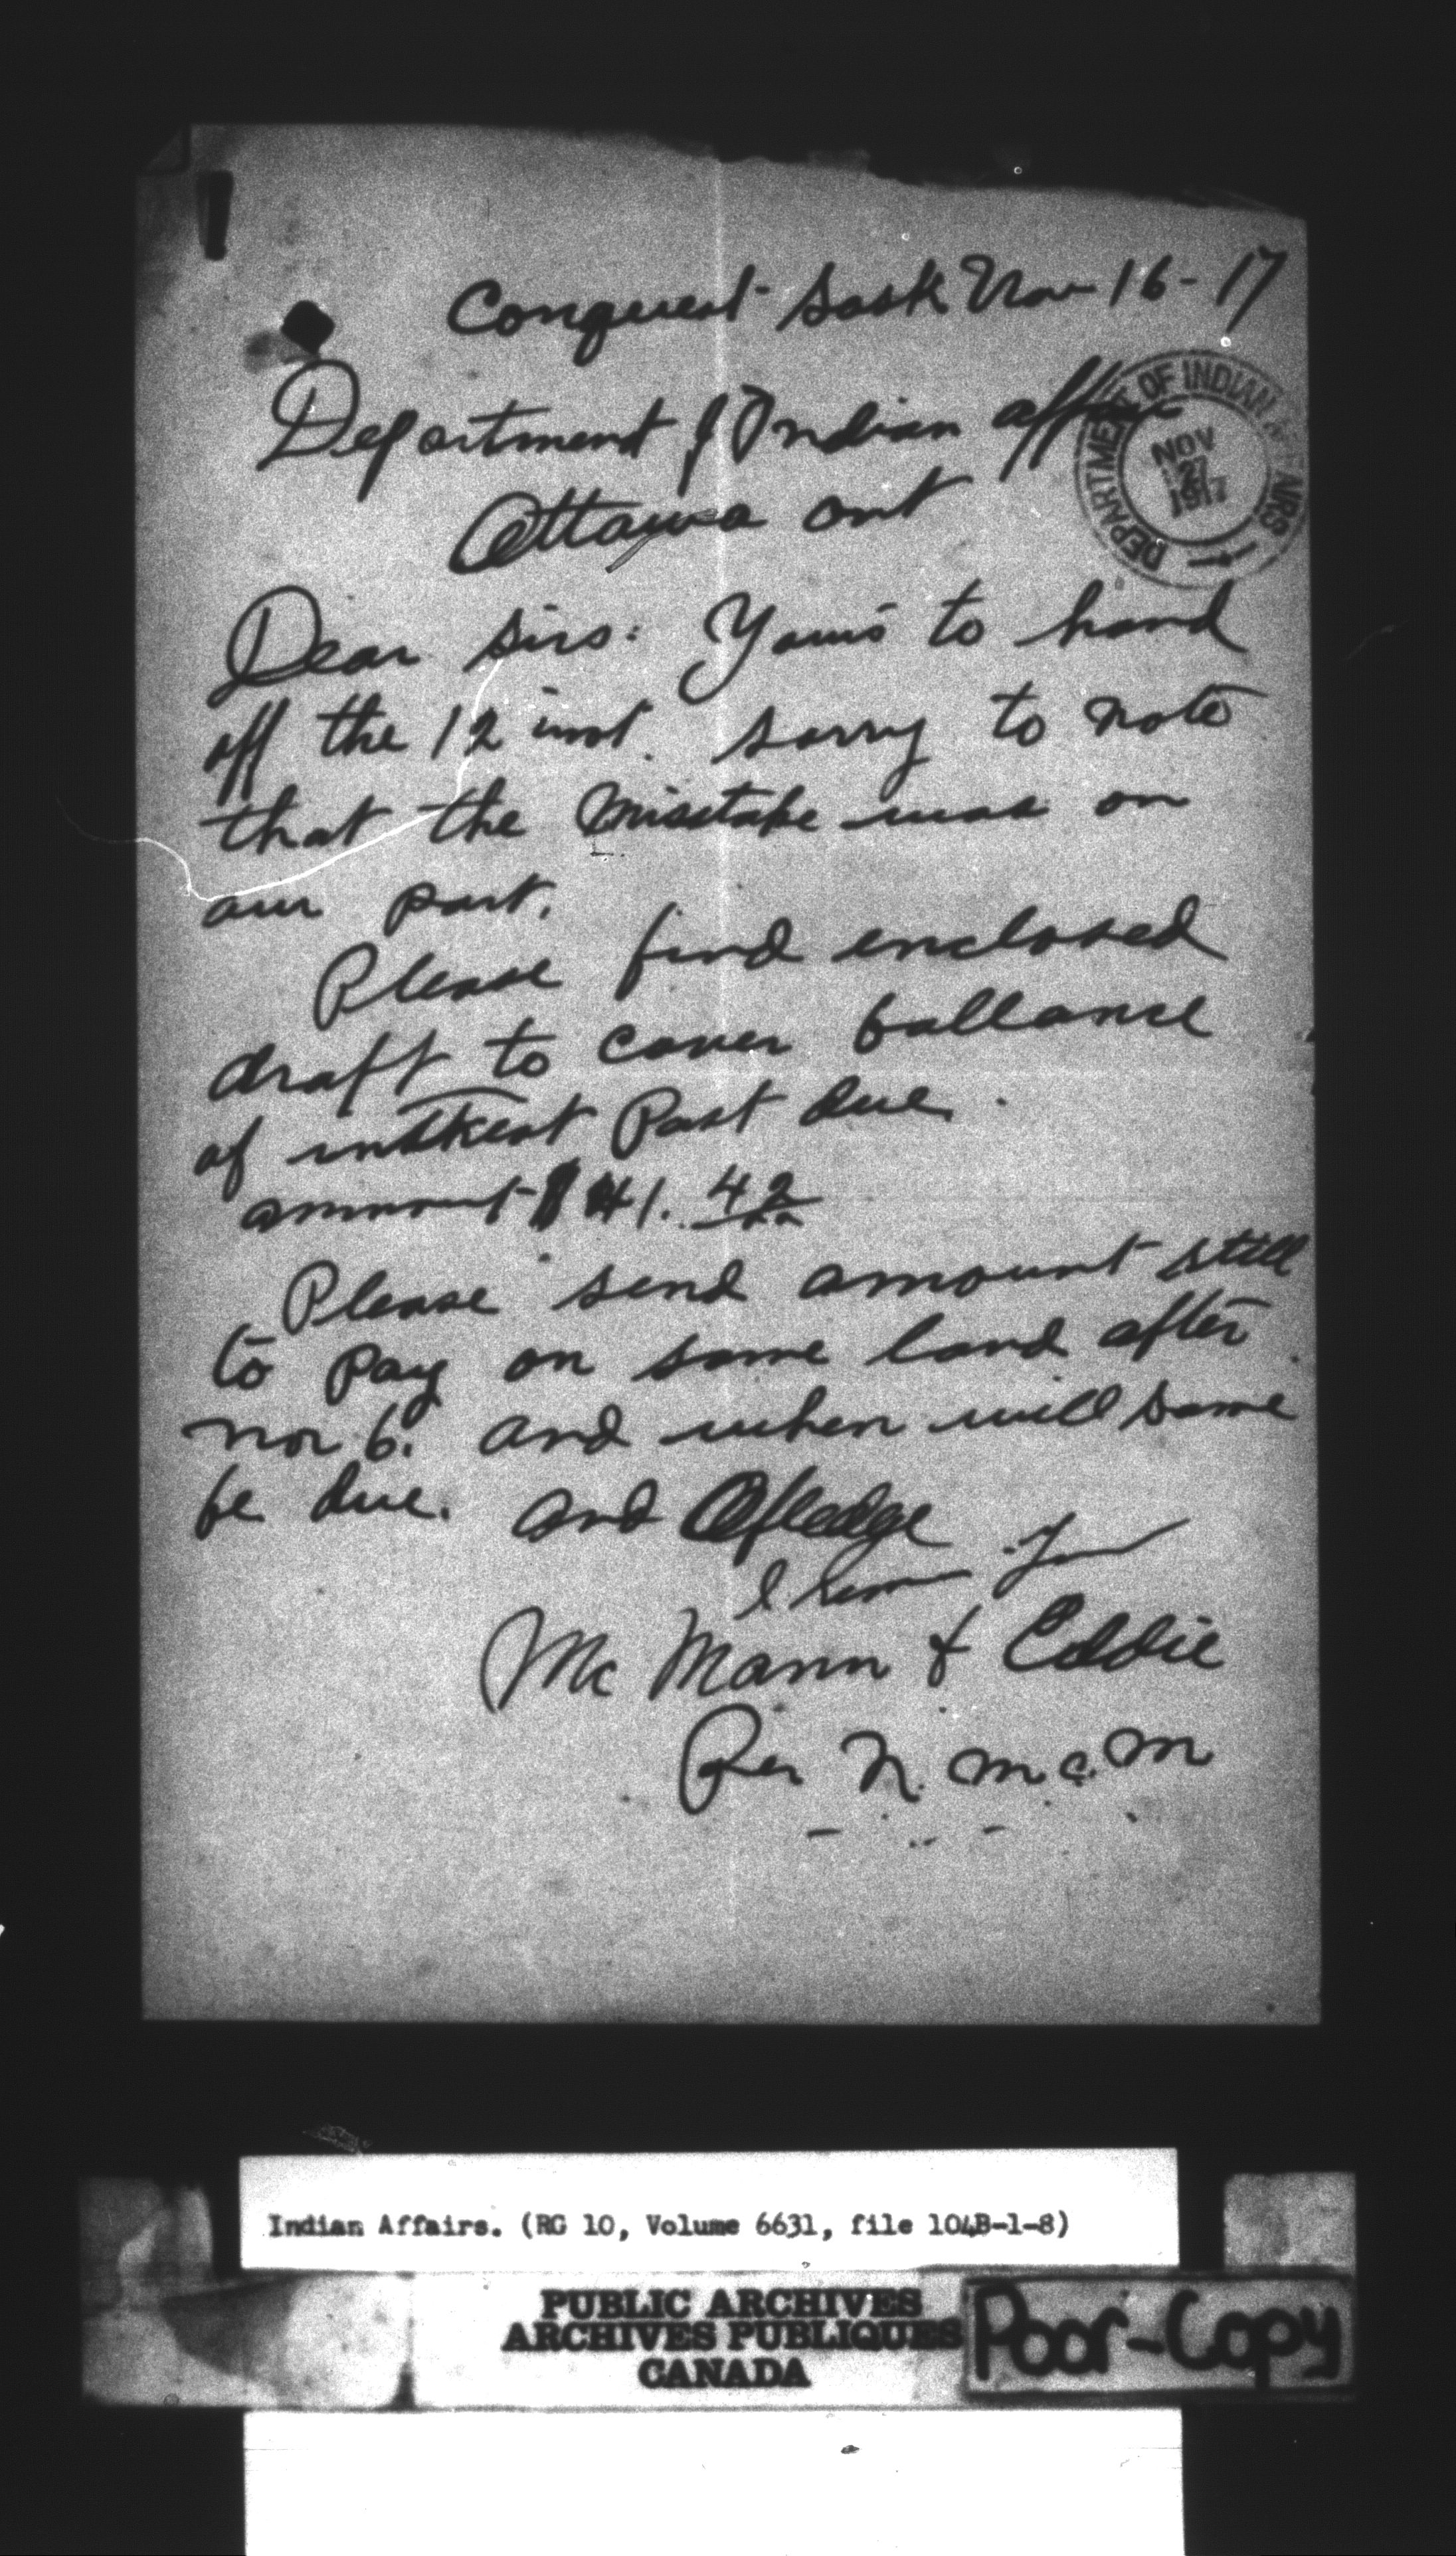 Conquest Sask Nov 16-17
Department of Indian affairs
DEPARTMENT OF INDIAN AFFAIRS
NOV 27 1917
Ottawa ont
Dear Sirs: Yours to hand
off the 12 inst. Sorry to note
that the Misstake was on
our part.
Please find enclosed
draft to cover ballance
of intrest Past due.
ammount $41.42
Please send amount still
to pay on same land after
Nov 6. and when will same
be due. and Obledge
I remain Your
Mc Mann & Eddie
Per N. Mc. M
Indian Affairs. (RG 10, Volume 6631, file 104B-1-8)
PUBLIC ARCHIVES
ARCHIVES PUBLIQUES
CANADA
Poor-Copy